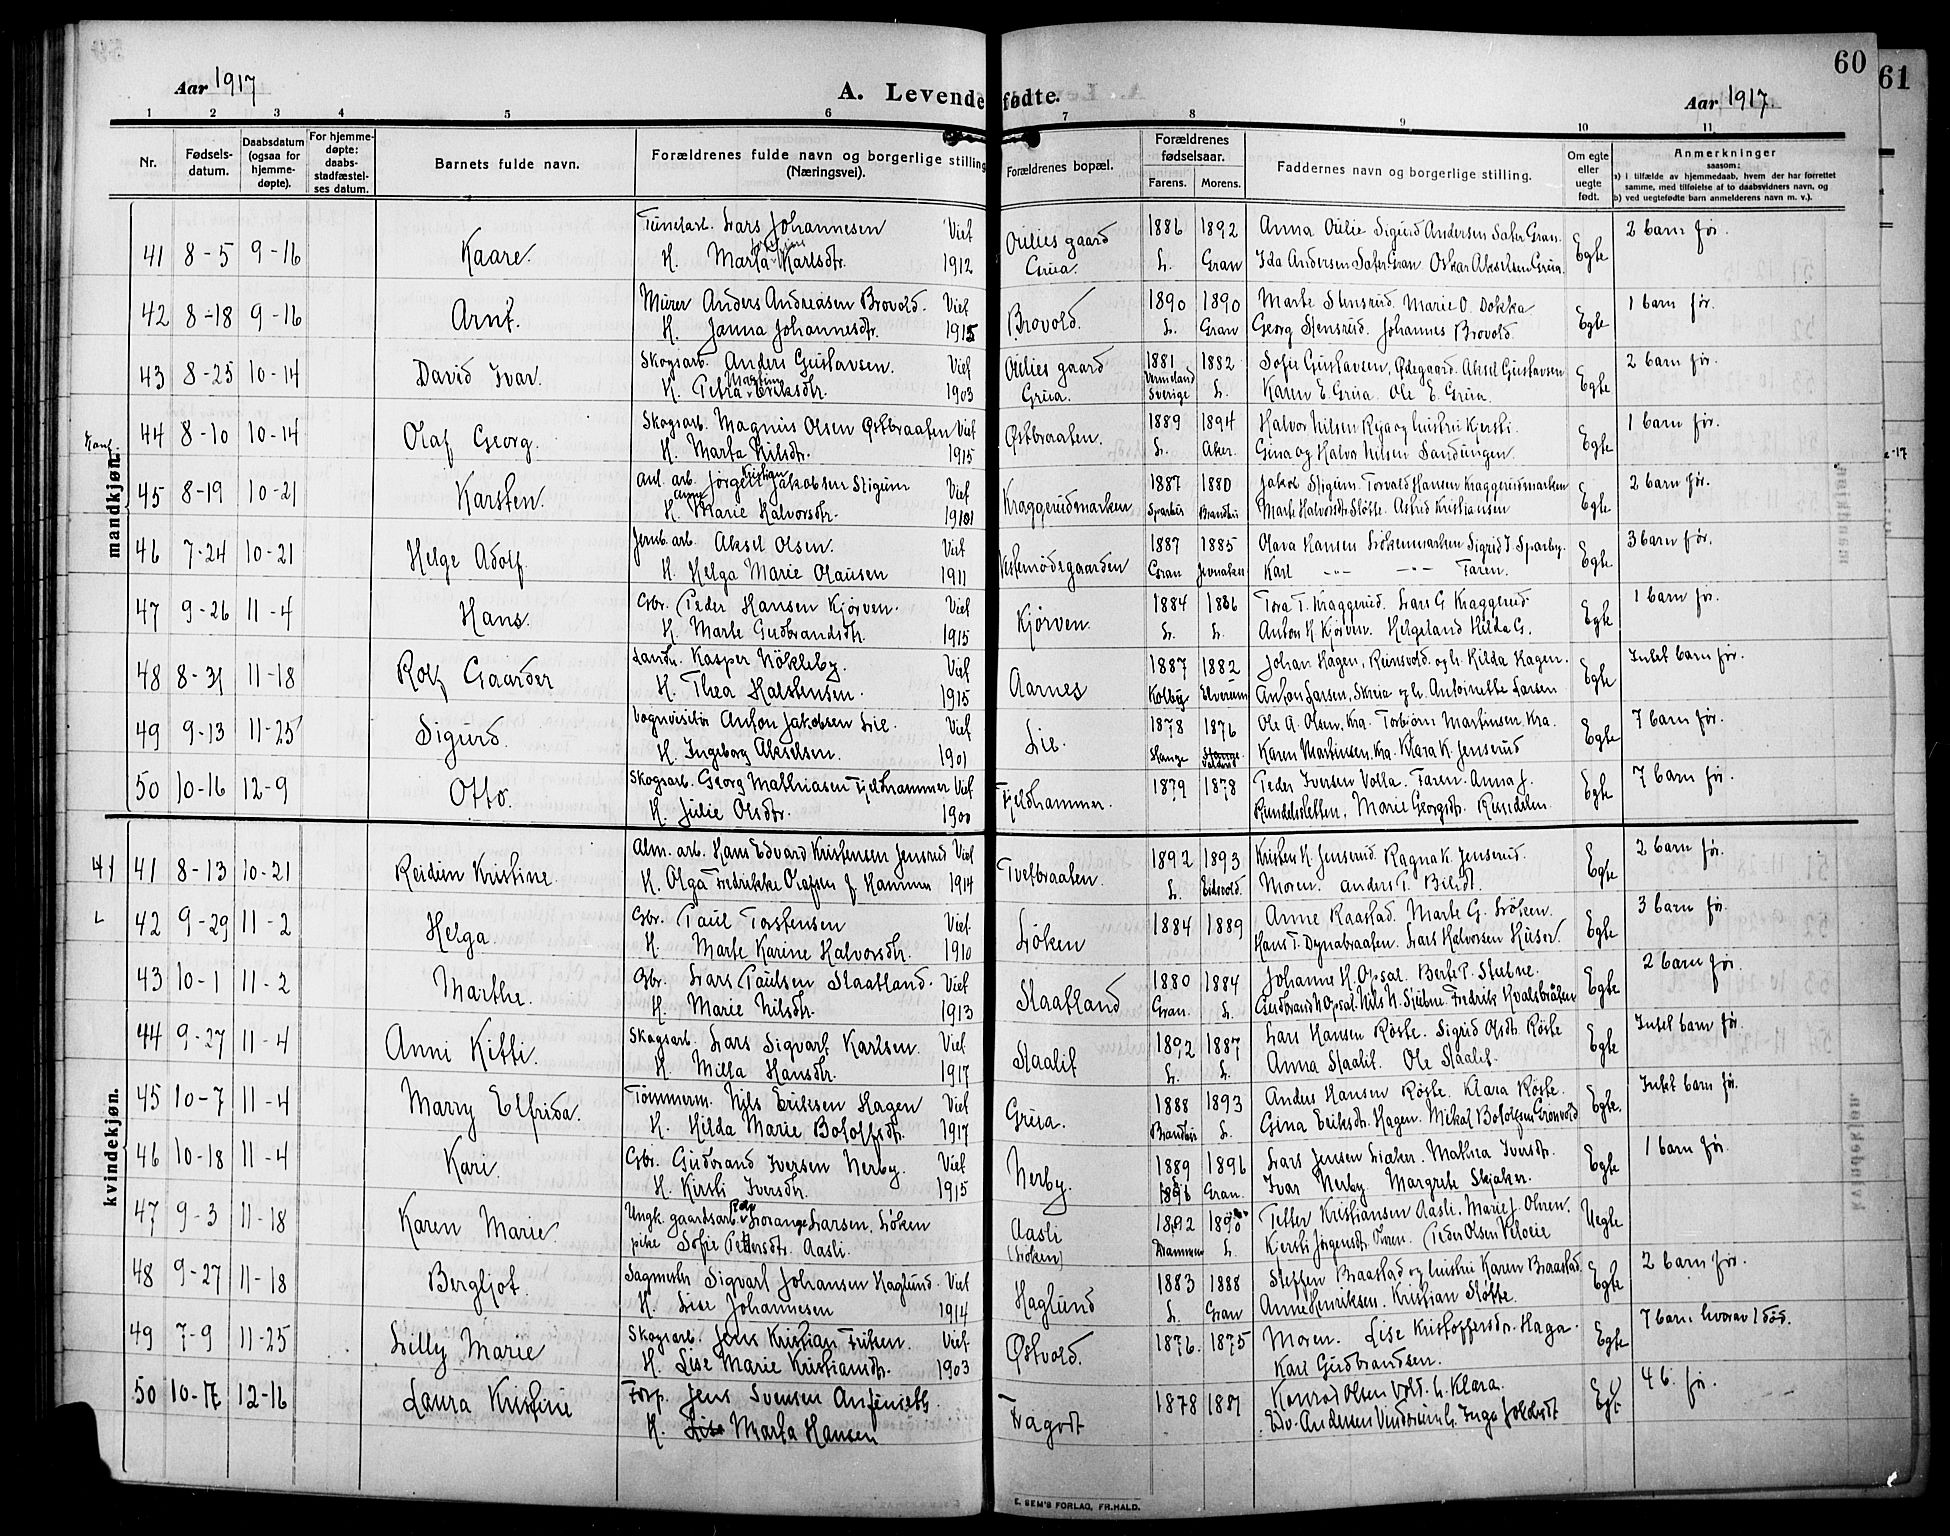 60
61
Aar 1917
A. Levendefødte.
Aar 1917
1 2 3 4 5 6 7 8 9 10 11
Nr.
Fødsels-
datum.
Daabsdatum
(ogsaa for
hjemme-
døpte).
For hjemme-
døpte:
daabs-
stadfæstel-
ses datum.
Barnets fulde navn.
Forældrenes fulde navn og borgerlige stilling
(Næringsvei).
Forældrenes bopæl.
Forældrenes
fødselsaar.
Farens. Morens.
Faddernes navn og borgerlige stilling.
Om egte
eller
uegte
født.
Anmerkninger
saasom:
a) i tilfælde av hjemmedaab, hvem der har forrettet
samme, med tilføielse af to daabsvidners navn, og
b) ved uegtefødte barn anmelderens navn m. v.).
mandkjøn.
41 8-5 9-16 Kaare. Lars Johannesen Viet
H. Marta Karlsdtr. 1912
Oulies gaard Grua. 1886 1892 L. Gran
Anna Oulie Sigurd Andersen Sater Gran.
Ida Andersen Sater Gran Oskar Akselsen Grua.
Egte 2 barn før.
42 8-18 9-16 Arnt. Murer Anders Andreasen Brovold. Viet
H. Janna Johannesdtr. 1915
Brovold. 1890 1890 L. Gran
Marte Stensrud. Marie O. Dokka
Georg Stensrud. Johannes Brovold.
Egte 1 barn før.
43 8-25 10-14 David Ivar. Skogsarb. Anders Gustavsen. Viet
H. Petra Eriksdtr. 1903
Oulies gaard Grua. 1881 1882 Vermland Sverige L.
Sofie Gustavsen, Ødegaard. Aksel Gustavsen
Karen E. Grua. Ole E. Grua.
Egte 2 barn før.
44 8-10 10-14 Olaf Georg. Skogsarb. Magnus Olsen Østbraaten Viet
H. Marta Nilsdtr. 1915
Østbraaten. 1889 1894 L. Aker.
Halvor Nilsen og hustru Kjersti.
Gina og Halvor Nilsen Sandungen.
Egte 1 barn før.
45 8-19 10-21 Karsten. Anl. arb. Jørgen Kristian Jakobsen Stigum Viet
H. Anne Marie Halvorsdtr.
Kraggerudsmarken 1887 1880 Brandbu
Jakob Stigum. Torvald Hansen Kraggerudsmarken
Marte Halvorsdtr Sløtte. Astrid Kristiansen
Egte 2 barn før.
46 7-24 10-21 Helge Adolf. Jernb. arb. Aksel Olsen. Viet
H. Helga Marie Olausen 1911
1887 1885 Gran Jevnaker
Olava Hansen Løkenmarken Sigrid J. Sparby.
Karl -"- -"- Faren.
Egte 3 barn før.
47 9-26 11-4 Hans. Gbr. Peder Hansen Kjørven. Viet
H. Marte Gudbrandsdtr. 1915
Kjørven. 1884 1886 L. L.
Tora T. Kraggerud. Lars G. Kraggerud
Anton H. Kjørven. Helgeland Hilda G.
Egte 1 barn før.
48 8-31 11-18 Rolf Gaarder Landh. Kasper Nökleby. Viet
H. Thea Halstensen. 1915
Aarnes 1887 1882 Kolbu Elverum
Johan Hagen, Reinsvold. og h. Hilda Hagen.
Anton Larsen, Skreia og h. Antoinette Larsen
Egte Intet barn før.
49 9-13 11-25 Sigurd. Vognvisitør Anton Jakobsen Lie. Viet
H. Ingeborg Akselsen. 1901
Lie. 1878 1876 Stange
Ole A. Olsen, Kra. Torbjørn Martinsen, Kra.
Karen Martinsen, Kra. Klara K. Jenserud
Egte 7 barn før.
50 10-16 12-9 Otto. Skogsarb. Georg Mathiasen Fjeldhammer Viet
H. Julie Olsdtr. 1900
Fjeldhammer. 1879 1878
Peder Iversen Volla. Faren. Anna J.
Rundelsletten. Marie Georgsdtr. Rundelen.
Egte 7 barn før.
kvindekjøn.
41 41 8-13 10-21 Reidun Kristine. Alm. arb. Hans Edvard Kristensen Jenserud Viet
H. Olga Fredrikke Olafsen f. Hammer 1914
Tvetbraaten. 1892 1893 L. Eidsvold.
Kristen H. Jenserud. Ragna K. Jenserud.
Moren. Anders T. Bilidt.
Egte 2 barn før.
L 42 9-29 11-2 Helga. Gbr. Paul Torstensen Viet
H. Marte Karine Halvorsdtr. 1910
Løken 1884 1889
Anne Raastad. Marte G. Løken.
Hans T. Dynabraaten. Lars Halvorsen Huser.
Egte 3 barn før.
43 10-1 11-2 Marthe. Gbr. Lars Paulsen Slaatland. Viet
H. Marie Nilsdtr. 1913
Slaatland 1880 1884 Gran. L.
Johanne H. Opsal. Berte P. Stubne.
Gudbrand N. Opsal. Nils N. Stubne. Fredrik Kvalsbråten
Egte 2 barn før.
44 9-27 11-4 Anni Kitti. Skogsarb. Lars Sigvart Karlsen. Viet
H. Milla Hansdtr. 1917
Slaalit 1892 1887 L. L.
Lars Hansen Røste. Sigrid Olsdtr. Røste
Anna Slaalit. Ole Slaalit.
Egte Intet barn før.
45 10-7 11-4 Marry Elfrida. Tømmerm. Nils Eriksen Hagen Viet
H. Hilda Marie Bolofsdtr. 1917
Grua. 1888 1893 Brandbu L.
Anders Hansen Røste. Klara Røste.
Gina Eriksdtr. Hagen. Mikal Bolofsen Grønvold
Egte. Intet barn før.
46 10-18 11-4 Kari. Gbr. Gudbrand Iversen Nerby. Viet
H. Kirsti Iversdtr. 1915
Nerby. 1889 1896 Gran.
Lars Jensen Liaker. Mathea Iversdtr.
Ivar Nerby. Margrete Skjaker.
Egte 1 barn før.
47 9-3 11-18 Karen Marie. Ungk. gaardsarb. Lorange Larsen. Løken
pike Sofie Pettersdtr. Aasli.
Aasli (Løken) 1892 1890 Drammen L.
Petter Kristiansen Aasli. Marie J. Ohren.
Kjersti Jørgensdtr. Ohren. Peder Olsen Velo
Uegte
48 9-27 11-18 Bergljot. Sagmester Sigvart Johansen Haglund. Viet
H. Lise Johannesen 1914
Haglund 1883 1888 L. Gran
Steffen Braastad og hustru Karen Braastad.
Anne Henriksen. Kristian Sløtte.
Egte 2 barn før.
49 7-9 11-25 Lilly Marie Skogsarb. Jens Kristian Eriksen. Viet
H. Lise Marie Kristiansdtr. 1903
Østvold. 1876. 1875
Moren. Lise Kristoffersdtr. Haga.
Karl Gudbrandsen.
Egte 7 barn hvorav 1 død.
50 10-17 12-16 Laura Kristine Forp. Jens Svensen
H. Marta Hansen
1878 1881
Konrad Olsen Volt. h. Klara.
Andersen h. Inga
4 b. før.
E. SEM'S FORLAG, FR.HALD.